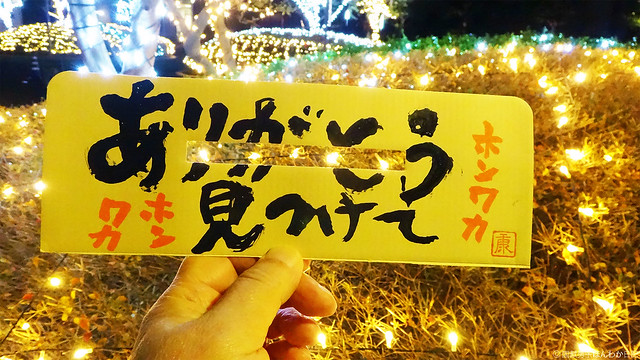 ありがとう
見つけて
ホンワカ
ホン
ワカ
康